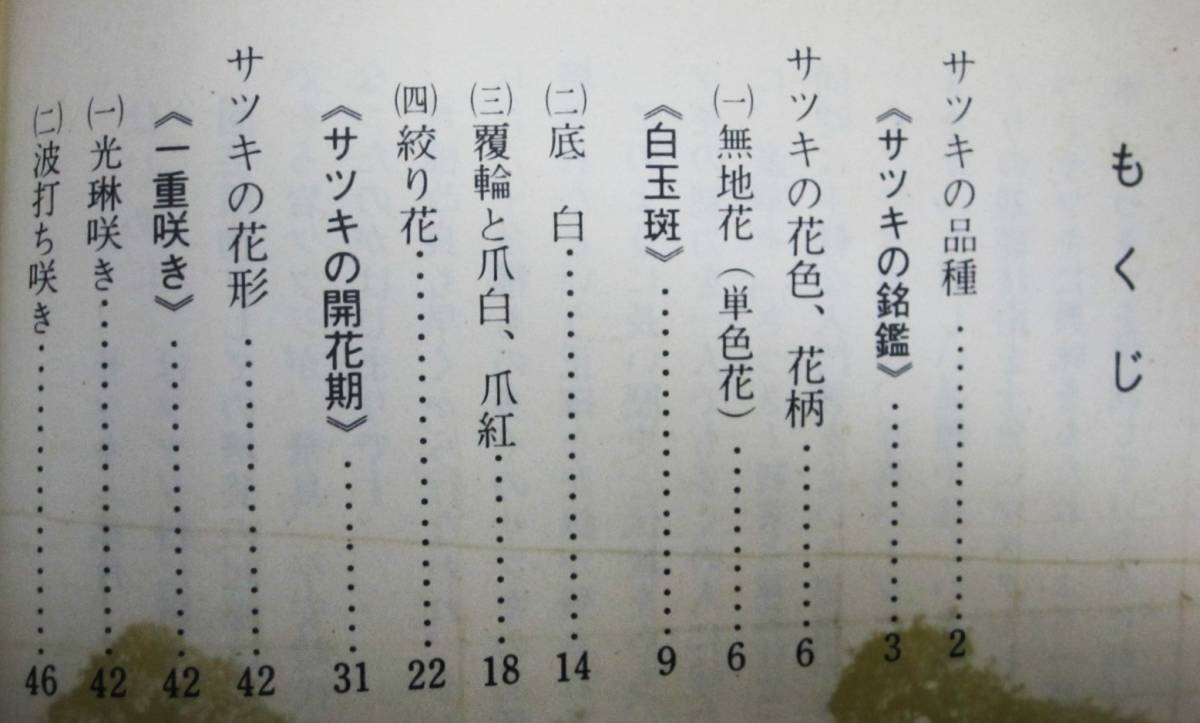 もくじ
サツキの品種…………………2
《サツキの銘鑑》…………………3
サツキの花色、花柄…………………6
㈠無地花（単色花）…………………6
《白玉斑》…………………9
㈡底　白…………………14
㈢覆輪と爪白、爪紅…………………18
㈣絞り花…………………22
《サツキの開花期》…………………31
サツキの花形…………………42
《一重咲き》…………………42
㈠光琳咲き…………………42
㈡波打ち咲き…………………46